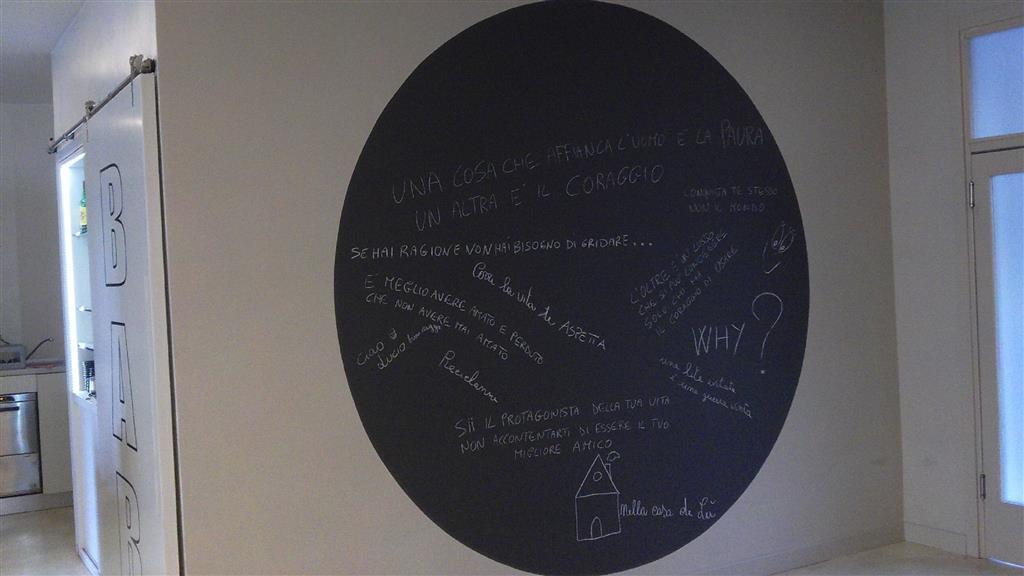 BAR
UNA COSA CHE AFFIANCA L'UOMO E LA PAURA
UN ALTRA E' IL CORAGGIO
CONQUISTA TE STESSO
NON IL MONDO
SE HAI RAGIONE NON HAI BISOGNO DI GRIDARE...
L'OLTRE È UN LUOGO
CHE SI PUÒ
SOLO CHI HA
IL CORAGGIO DI OSARE
E' MEGLIO AVERE AMATO E PERDUTO
CHE NON AVERE MAI AMATO
la vita ti ASPETTA
CIAO
LUCIO
WHY?
una lite evitata
È una guerra vinta
SII IL PROTAGONISTA DELLA TUA VITA
NON ACCONTENTARTI DI ESSERE IL TUO
MIGLIORE AMICO
Nella casa di Lù